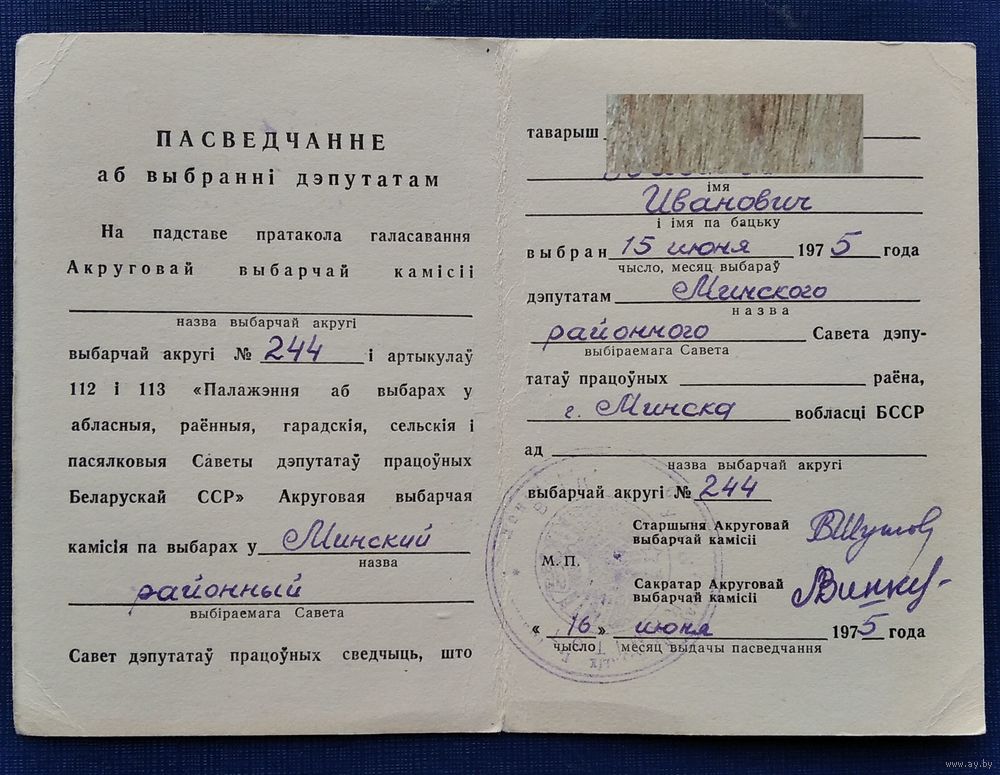 ПАСВЕДЧАННЕ
аб выбранні дэпутатам
На падставе пратакола галасавання
Акруговай выбарчай камісіі
назва выбарчай акругі
выбарчай акругі № 244 і артыкулаў
112 і 113 «Палажэння аб выбарах у
абласныя, раённыя, гарадскія, сельскія і
пасялковыя Саветы дэпутатаў працоўных
Беларускай ССР» Акруговая выбарчая
камісія па выбарах у Минский
назва
районный
выбіраемага Савета
Савет дэпутатаў працоўных сведчыць, што
таварыш
імя
Иванович
і імя па бацьку
выбран 15 июня 1975 года
чысло, месяц выбараў
дэпутатам Минского
назва
районного Савета дэпу-
выбіраемага Савета
татаў працоўных раёна,
г. Минска вобласці БССР
ад
назва выбарчай акругі
выбарчай акругі № 244
Старшыня Акруговай
выбарчай камісіі
М. П.
Сакратар Акруговай
выбарчай камісіі
« 16 » июня 1975 года
чысло месяц выдачы пасведчання
www.ay.by